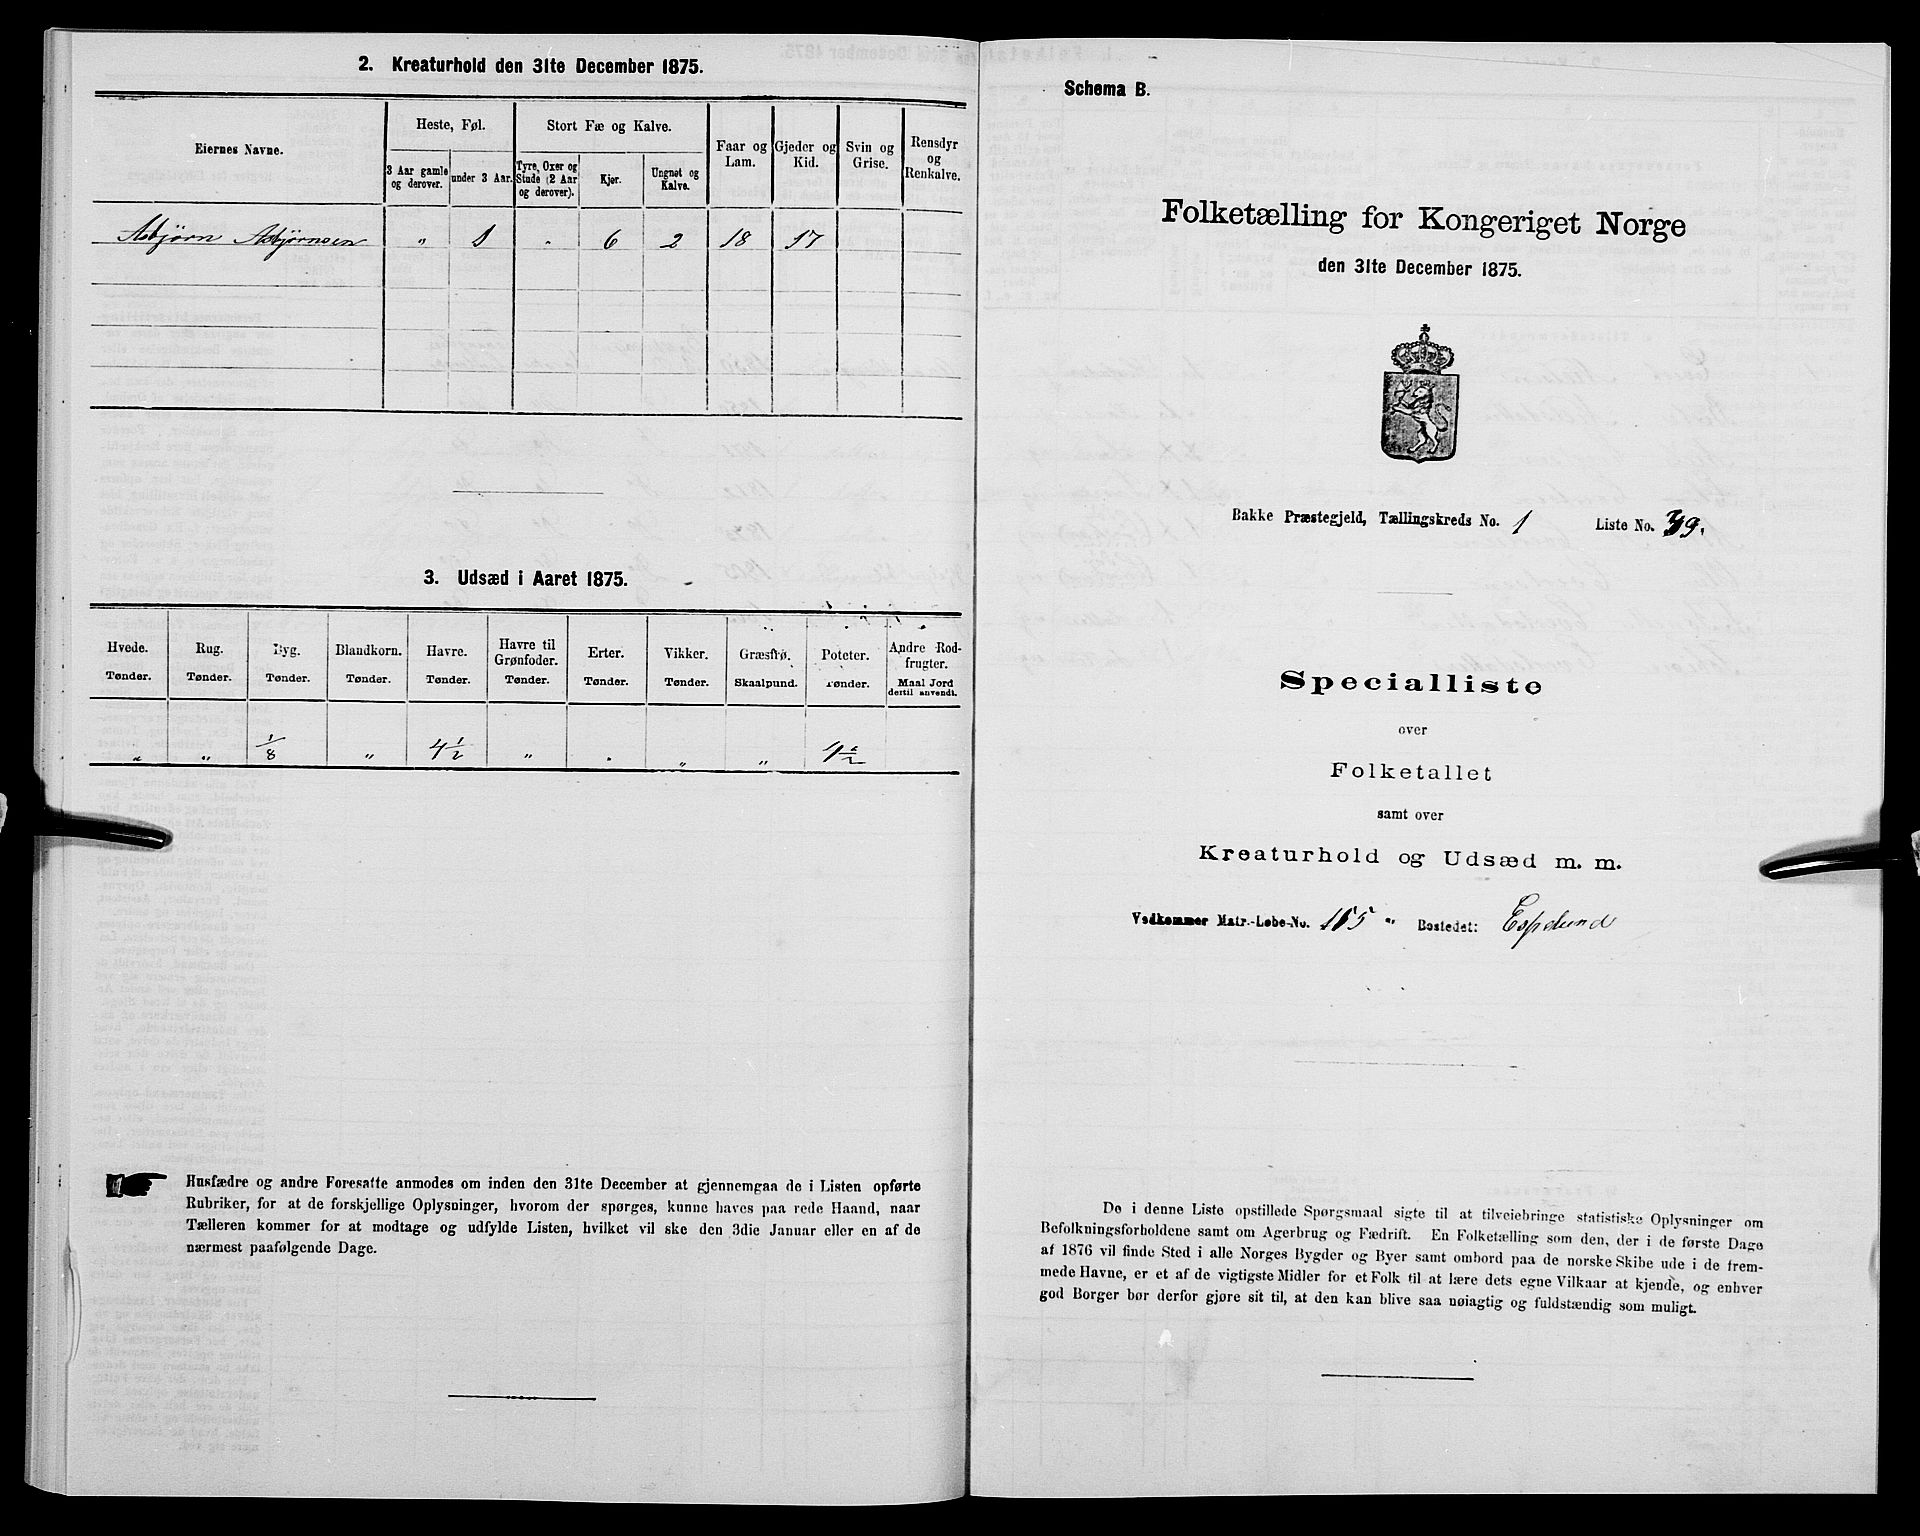 2. Kreaturhold den 31te December 1875.
Eiernes Navne.
Heste, Føl.
3 Aar gamle og derover.
under 3 Aar.
Stort Fæ og Kalve.
Tyre, Oxer og Stude (2 Aar og derover).
Kjør.
Ungnøt og Kalve.
Faar og Lam.
Gjeder og Kid.
Svin og Grise.
Rensdyr og Renkalve.
Asbjørn Asbjørnsen " 1 " 6 2 18 17
3. Udsæd i Aaret 1875.
Hvede. Rug. Byg. Blandkorn. Havre. Havre til Grønfoder. Erter. Vikker. Græsfrø. Poteter. Andre Rodfrugter.
Tønder. Tønder. Tønder. Tønder. Tønder. Tønder. Tønder. Tønder. Skaalpund. Tønder. Maal Jord dertil anvendt.
" " 1/8 " 4 1/2 " " " " 4 1/2
Husfædre og andre Foresatte anmodes om inden den 31te December at gjennemgaa de i Listen opførte
Rubriker, for at de forskjellige Oplysninger, hvorom der spørges, kunne haves paa rede Haand, naar
Tælleren kommer for at modtage og udfylde Listen, hvilket vil ske den 3die Januar eller en af de
nærmest paafølgende Dage.
Schema B.
Folketælling for Kongeriget Norge
den 31te December 1875.
Bakke Præstegjeld, Tællingskreds No. 1 Liste No. 39.
Specialliste
over
Folketallet
samt over
Kreaturhold og Udsæd m. m.
Vedkommer Matr.-Løbe-No. 165 " Bostedet: Espelund
De i denne Liste opstillede Spørgsmaal sigte til at tilveiebringe statistiske Oplysninger om
Befolkningsforholdene samt om Agerbrug og Fædrift. En Folketælling som den, der i de første Dage
af 1876 vil finde Sted i alle Norges Bygder og Byer samt ombord paa de norske Skibe ude i de frem-
mede Havne, er et af de vigtigste Midler for et Folk til at lære dets egne Vilkaar at kjende, og enhver
god Borger bør derfor gjøre sit til, at den kan blive saa nøiagtig og fuldstændig som muligt.